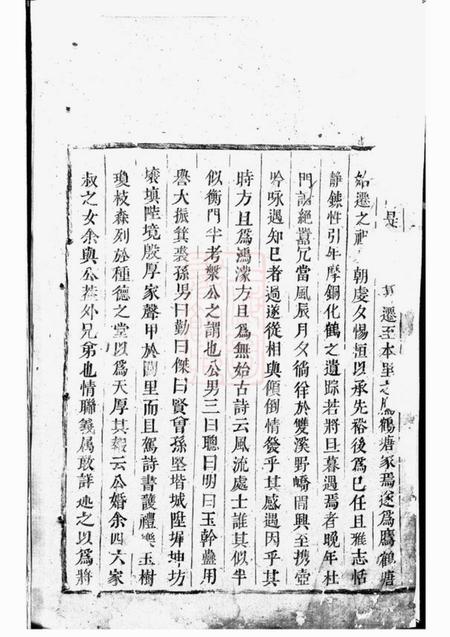 是 遷至本里之 鶴塘家焉遂為 鶴塘
始遷之祖 朝虔夕惕恒以承先裕後為己任且雅志恬
靜鍊性引年摩銅化鶴之遺踪若將旦暮遇焉者晚年杜
門 絕囂冗當風辰月夕徜徉於雙溪野嶠間興至携壺
吟咏遇知己者過遂從相與傾倒情發乎其感遇因乎其
時方且為鴻濛方且為無始古詩云風流處士誰其似半
似衡門半考槃公之謂也公男三曰聰曰明曰玉幹蠱用
譽大振箕裘孫男曰勤曰傑曰賢會孫堅堦城陞墀坤坊
埈填陛境殷厚家聲甲於閭里而且駕詩書護禮樂玉樹
瓊枝森列於種德之堂以為天厚其報云公婚余四大家
叔之女余與公甚外兄弟也情聯義屬敢詳述之以為將